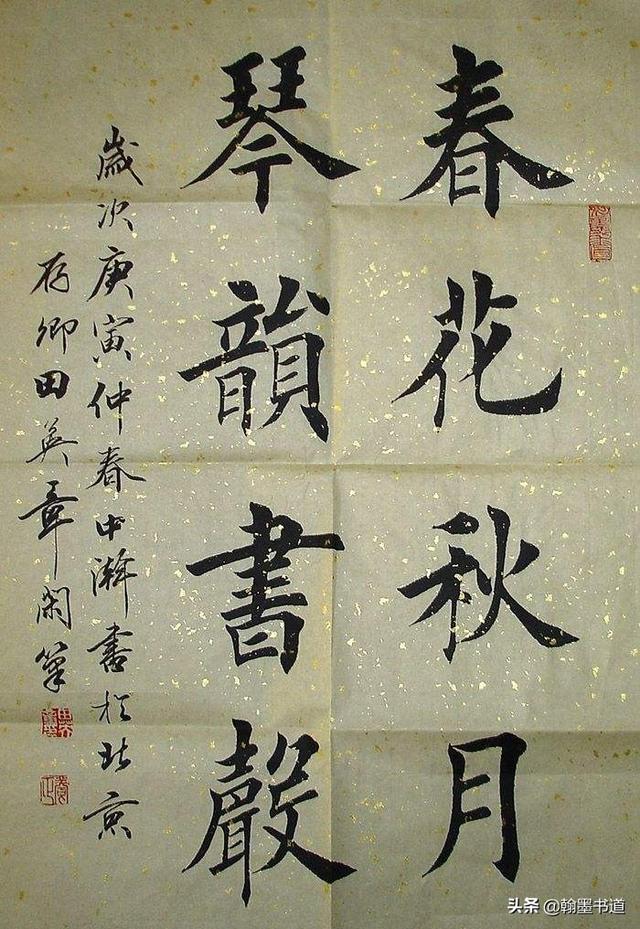 春花秋月
琴韻書聲
歲次庚寅仲春中澣書於北京
存卿田英章閑筆
头条 @翰墨书道